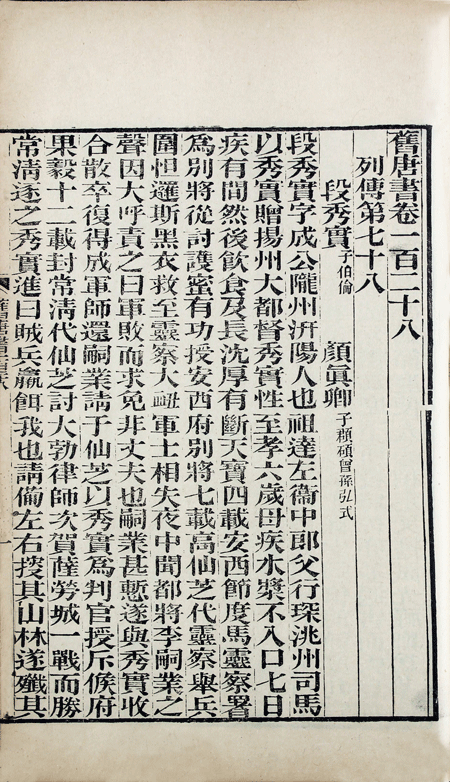 舊唐書卷一百二十八
列傳第七十八
段秀實子伯倫 顏眞卿子頵碩曾孫弘式
段秀實字成公隴州汧陽人也祖達左衞中郎父行琛洮州司馬
以秀實贈揚州大都督秀實性至孝六歲母疾水漿不入口七日
疾有間然後飲食及長沈厚有斷天寶四載安西節度馬靈察署
爲別將從討護蜜有功授安西府別將七載高仙芝代靈察舉兵
圍怛邏斯黑衣救至靈察大衄軍士相失夜中聞都將李嗣業之
聲因大呼責之曰軍敗而求免非丈夫也嗣業甚慙遂與秀實收
合散卒復得成軍師還嗣業請于仙芝以秀實爲判官授斥候府
果毅十二載封常淸代仙芝討大勃律師次賀薩勞城一戰而勝
常淸逐之秀實進曰賊兵羸餌我也請備左右搜其山林遂殲其